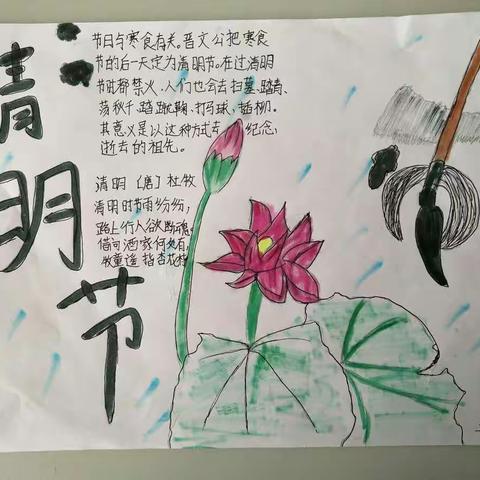 清明节
节日与寒食有关。晋文公把寒食
节的后一天定为清明节。在过清明
节时都禁火、人们也会去扫墓、踏青、
荡秋千、踏蹴鞠、打马球、插柳。
其意义是以这种方式去纪念
逝去的祖先。
清明 [唐] 杜牧
清明时节雨纷纷,
路上行人欲断魂。
借问酒家何处有,
牧童遥指杏花村